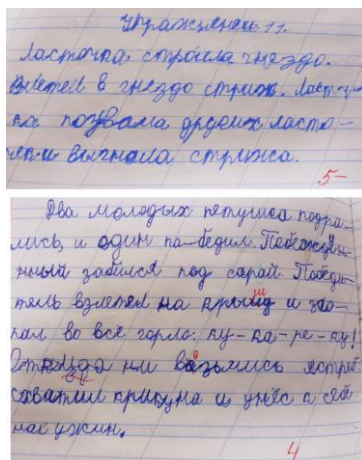 Упражнение 11.
Ласточка строила гнездо.
Влетел в гнездо стриж. Ласточ-
ка позвала других ласто-
и выгнала стрижа.
5-
Два молодых петушка подра-
лись, и один по-бедил. Побеждён-
нный забился под сарай. Победи-
тель взлетел на крышу и зао-
рал во всё горло: ку-ка-ре-ку!
Откуда ни возьмись ястреб:
схватил крикуна и унёс к себе
на ужин.
4